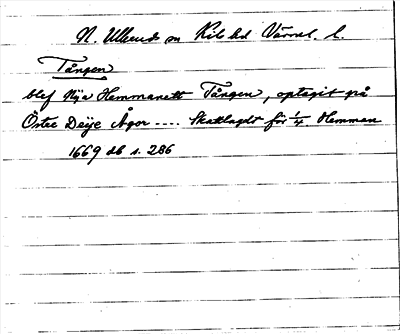 N. Ullerud sn Kils hd Värml. l.
Tången
blef Nya Hemmanett Tången, optagit på
Östre Deije Ägor .... Skattlagdt för 1/4 Hemman
1669 db s. 286